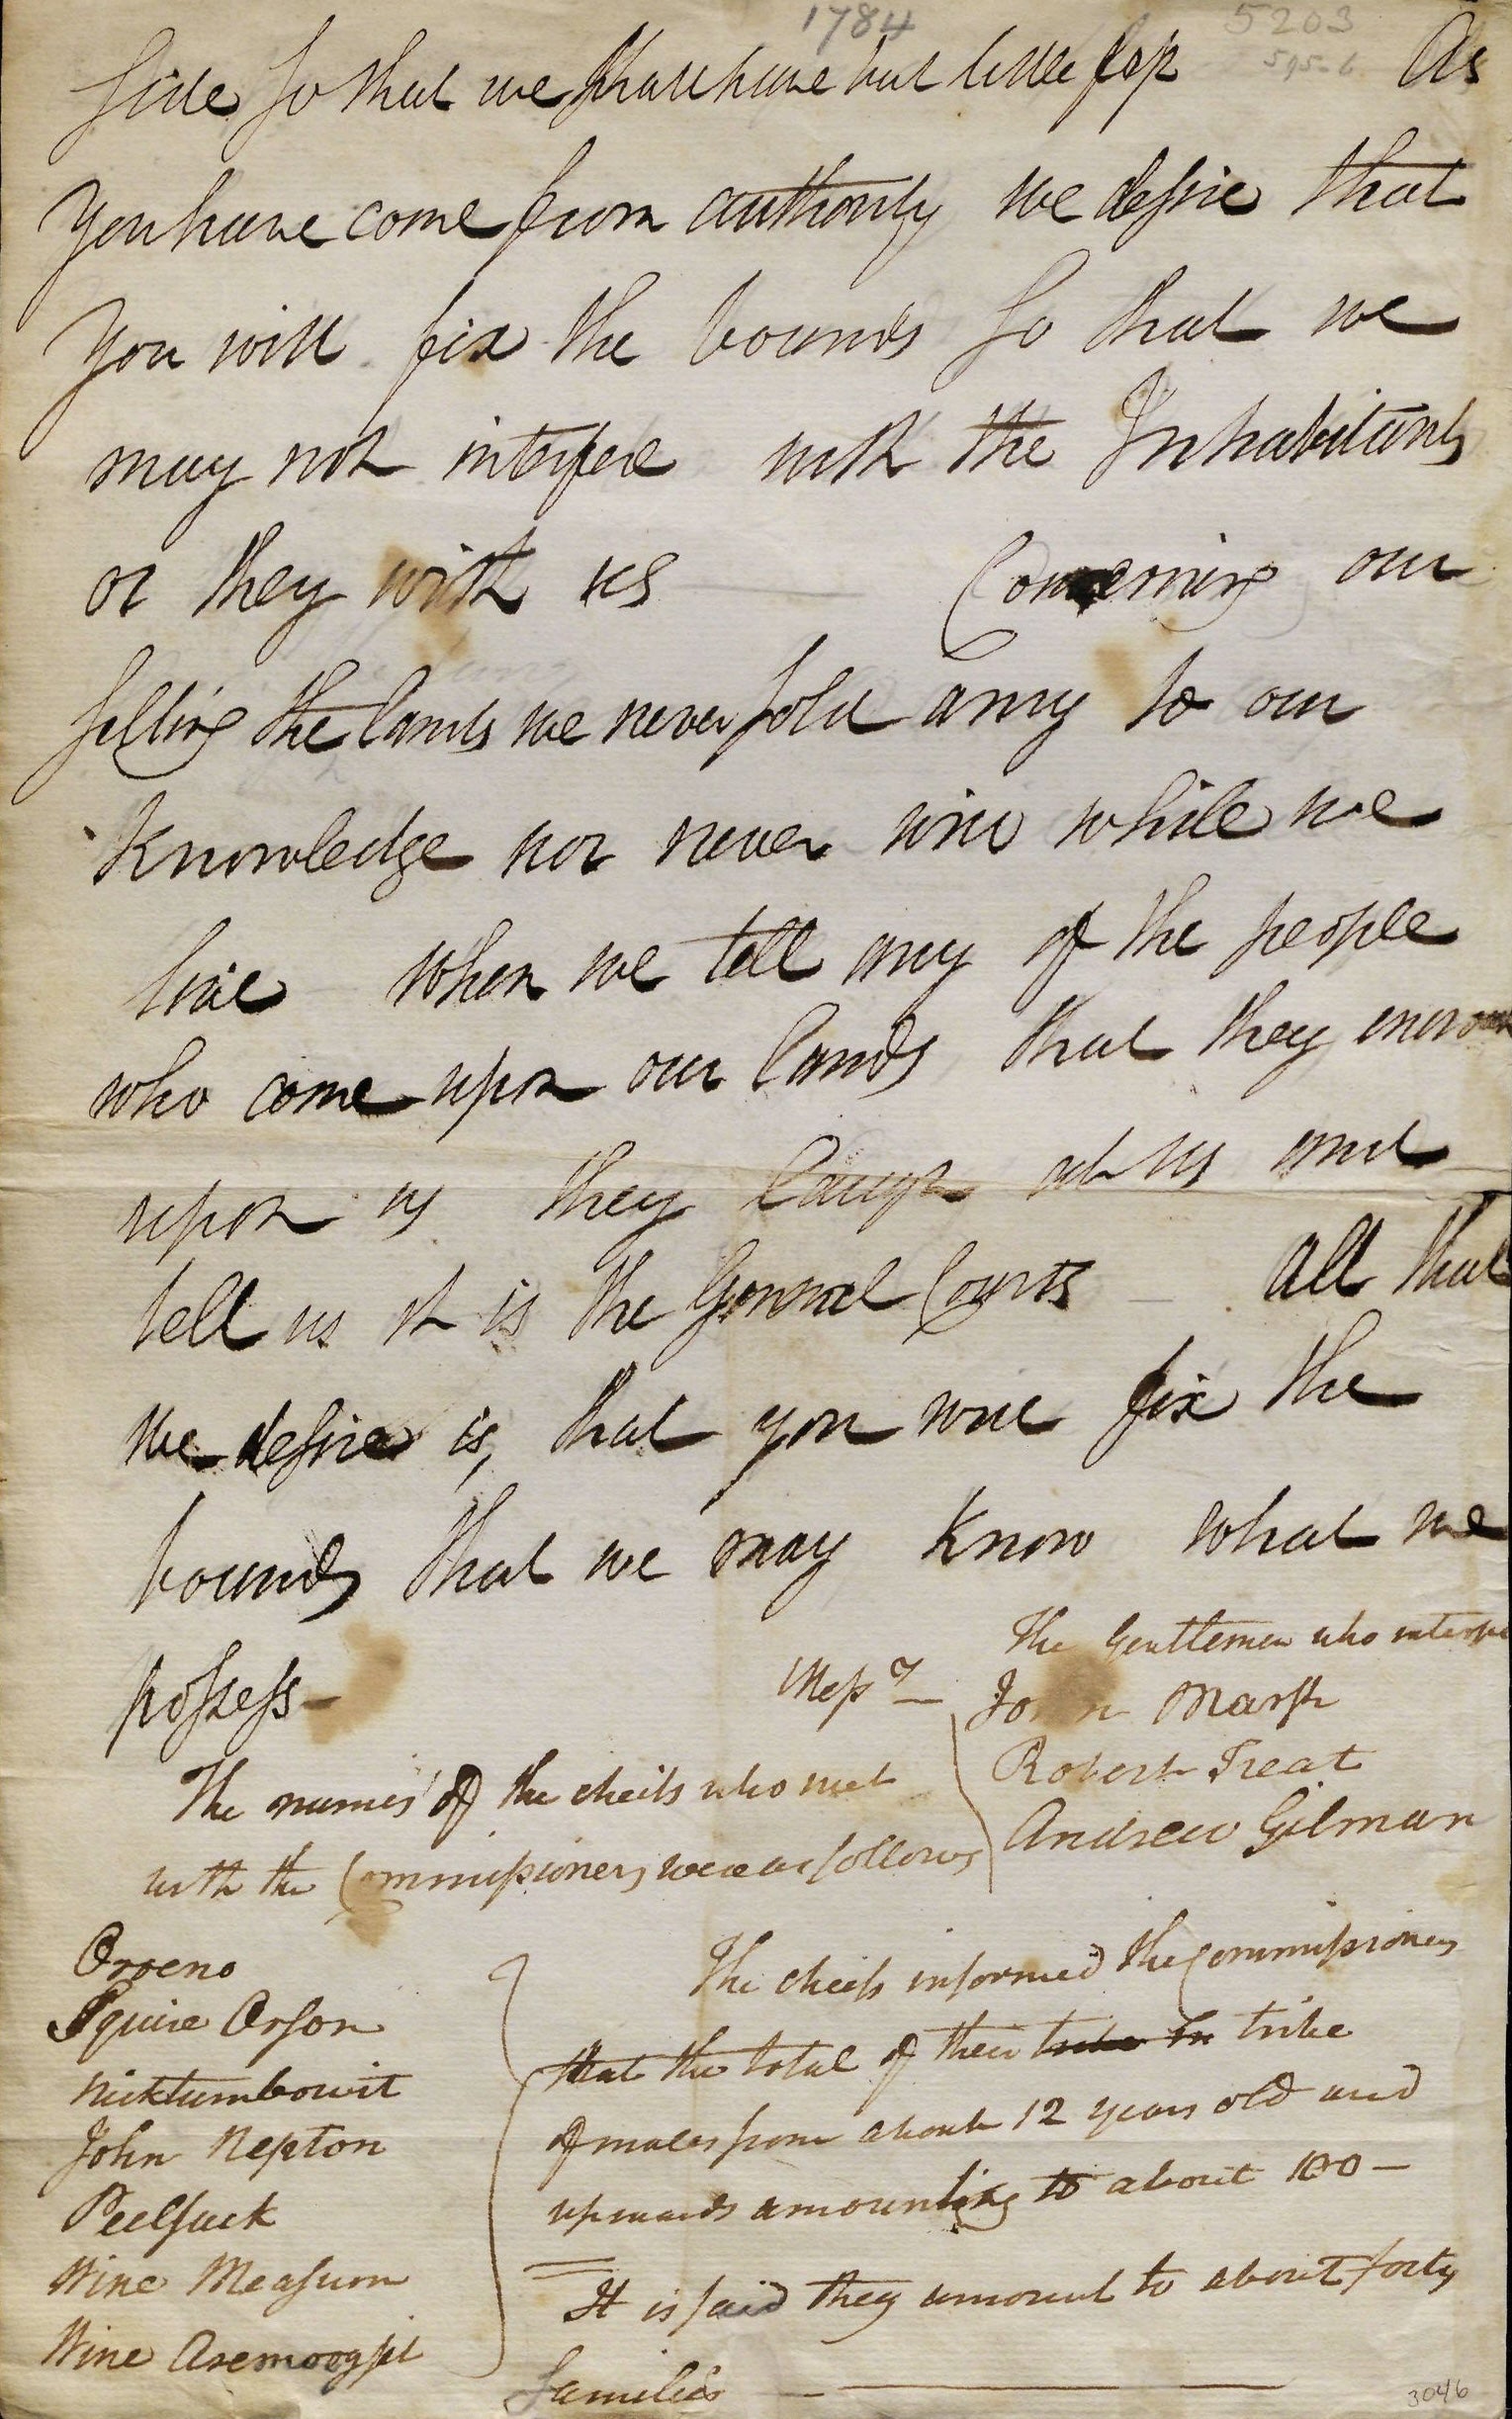 1784
5203
5956
side so that we shall have but little As
you have come from authority we desire that
you will fix the bounds so that we
may not interfere with the Inhabitants
or they with us Concerning our
selling the lands we never sold any to our
Knowledge nor never will while we
live when we tell any of the people
who come upon our lands that they
upon us they laugh at us and
tell us it is the Genneral Courts – all that
we desire is, that you will fix the
bounds that we may know what we
possess –
The Gentlemen who
Messrs –
John Marsh
Robert Treat
Andrew Gilman
The names of the cheifs who met
with the Commissioners were as follows
Orseno
Squire Orson
Nicktumbowit
John Nepton
Peelsuck
Wine Measum
Wine Asemoogsit
The cheifs informed the Commissioners
that the total of their tribe in tribe
of males from about 12 years old and
upwards amounting to about 100 –
It is said they amount to about forty
families
3046